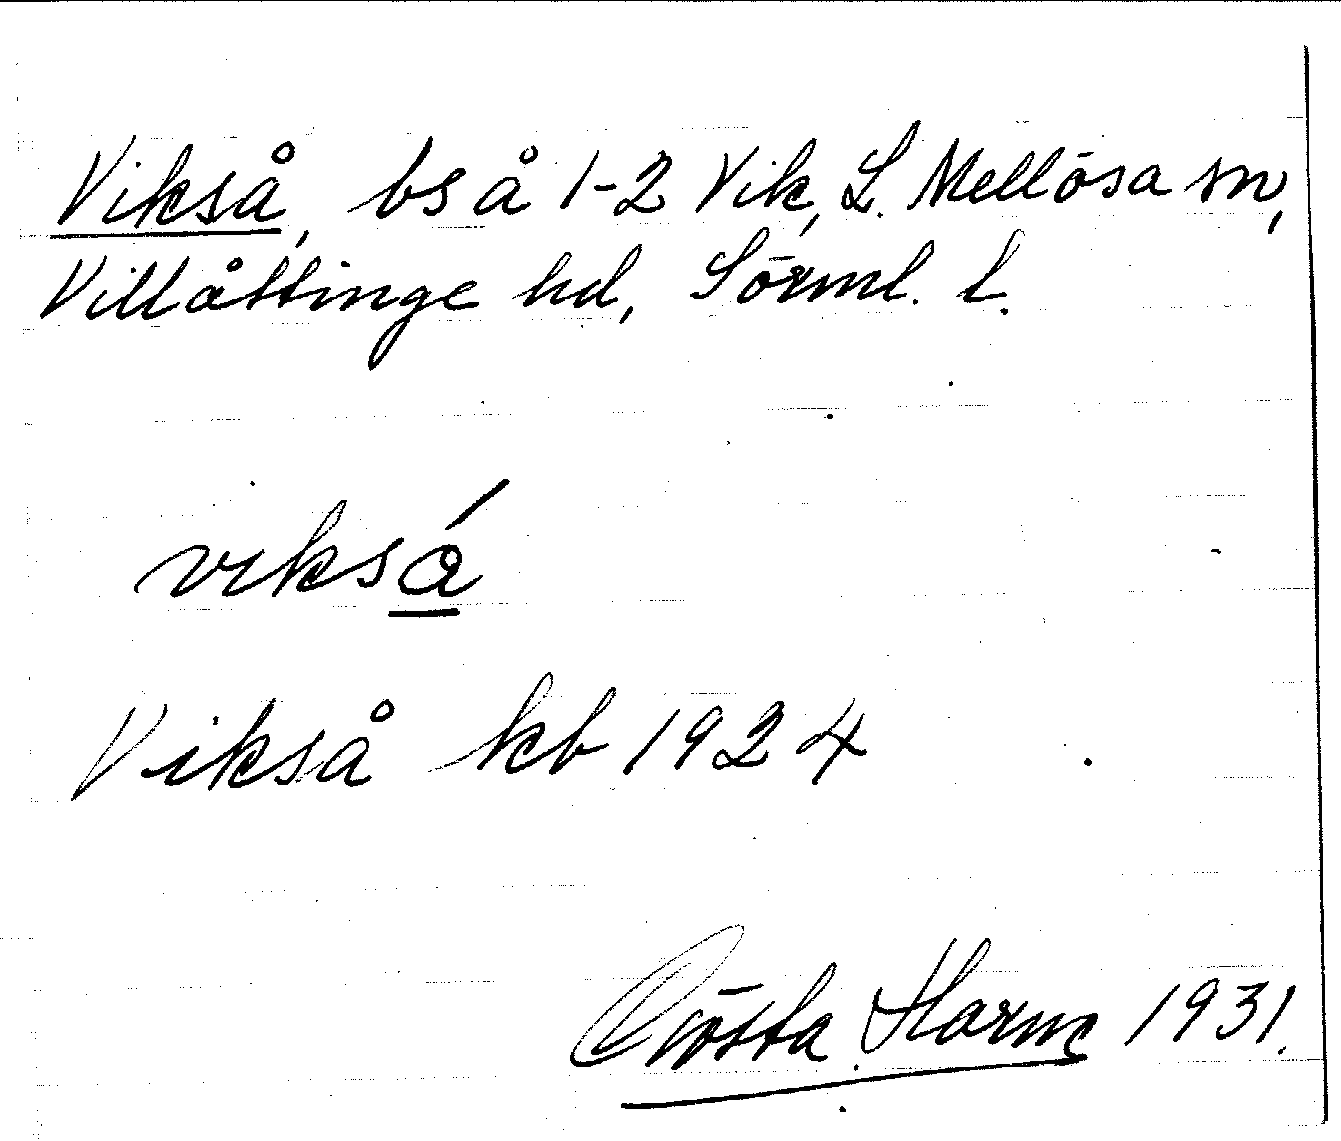 Vikså, bs å 1-2 Vik, L. Mellösa sn,
Villåttinge hd, Sörml. l.
viksá
Vikså kb 1924
Gösta Harms 1931.